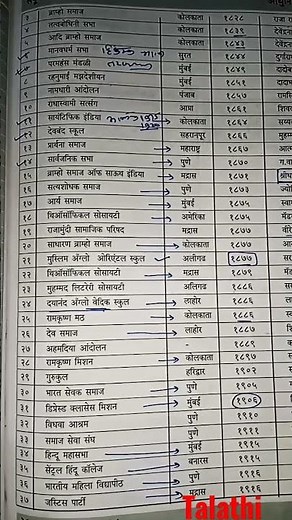 आधुनि
३ ब्राह्मो समाज कोलकाता १८२८ राजा
४ तत्वबोधिनी सभा कोलकाता १८३९ देवेंद्र
५ आदि ब्राह्मो समाज कोलकाता १८४३ देवेंद्रन
६ मानवधर्म सभा सुरत १८४४ दुर्गारा
७ परमहंस मंडळी मुंबई १८४९ दादोब
८ रहनुमाई मझदेशीयन मुंबई १८५१ दादाभ
९ नामधारी आंदोलन पंजाब १८५७ रामसि
१० राधास्वामी सत्संग आग्रा १८६१ शिवद
११ सायंटिफिक इंडिया कोलकाता १८६४ सय्यद
१२ देवबंद स्कूल सहरानपूर १८६६ मुहम्म
१३ प्रार्थना समाज महाराष्ट्र १८६७ आत्मा
१४ सार्वजनिक सभा पुणे १८७० ग.वा.
१५ ब्राह्मो समाज ऑफ साऊथ इंडिया मद्रास १८७१ श्रीध
१६ सत्यशोधक समाज पुणे १८७३ ज्यो
१७ आर्य समाज मुंबई १८७५ स्वा
१८ थिऑसॉफिकल सोसायटी अमेरिका १८७५ मॅड
१९ राजामुंद्री सामाजिक परिषद मद्रास १८७७ वीरे
२० साधारण ब्राह्मो समाज कोलकाता १८७७ आ
२१ मुस्लिम अँग्लो ओरिएंटल स्कूल अलीगढ १८७७ सर
२२ थिऑसॉफिकल सोसायटी मद्रास १८७९ मॅ
२३ मुहम्मद लिटरेरी सोसायटी अलिगढ १८८६ सर
२४ दयानंद अँग्लो वेदिक स्कूल लाहोर १८८६ ल
२५ रामकृष्ण मठ कोलकाता १८८६ स
२६ देव समाज लाहोर १८८७ शि
२७ अहमदिया आंदोलन - १८८९
२८ रामकृष्ण मिशन कोलकाता १८९७ स
२९ गुरुकुल हरिद्वार १९०२ स
३० भारत सेवक समाज पुणे १९०५
३१ डिप्रेस्ड क्लासेस मिशन मुंबई १९०६
३२ विधवा आश्रम पुणे १९१०
३३ समाज सेवा संघ पुणे १९११
३४ हिन्दू महासभा मुंबई १९१५
३५ सेंट्रल हिंदू कॉलेज बनारस १९१५
३६ भारतीय महिला विद्यापीठ पुणे १९१६
३७ जस्टिस पार्टी मद्रास १९१६
Talathi